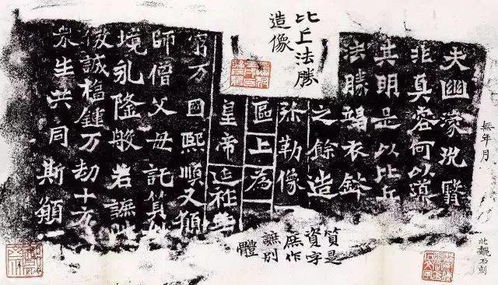 比丘法勝
造像
夫幽宗玩
非真容何以
其明是以比丘
法勝竭衣鉢
之餘造
弥勒像
區上為
皇帝延祚
窮万國熙順又願
師僧父母託真
境永隆般若
誠福鍾万劫十方
衆生共同斯願
無年月
北魏石刻
質是
資字
庶作
別
體